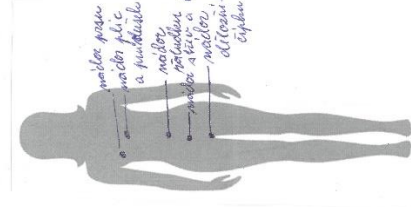 nádor prsu
nádor plic
a průdušek
nádor
žaludku
nádor střev a
nádor
děložní-
čípku